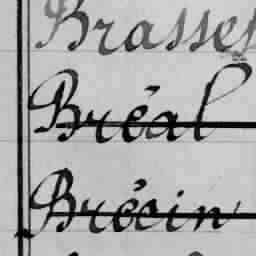 Brasses
Bréal
Brécin